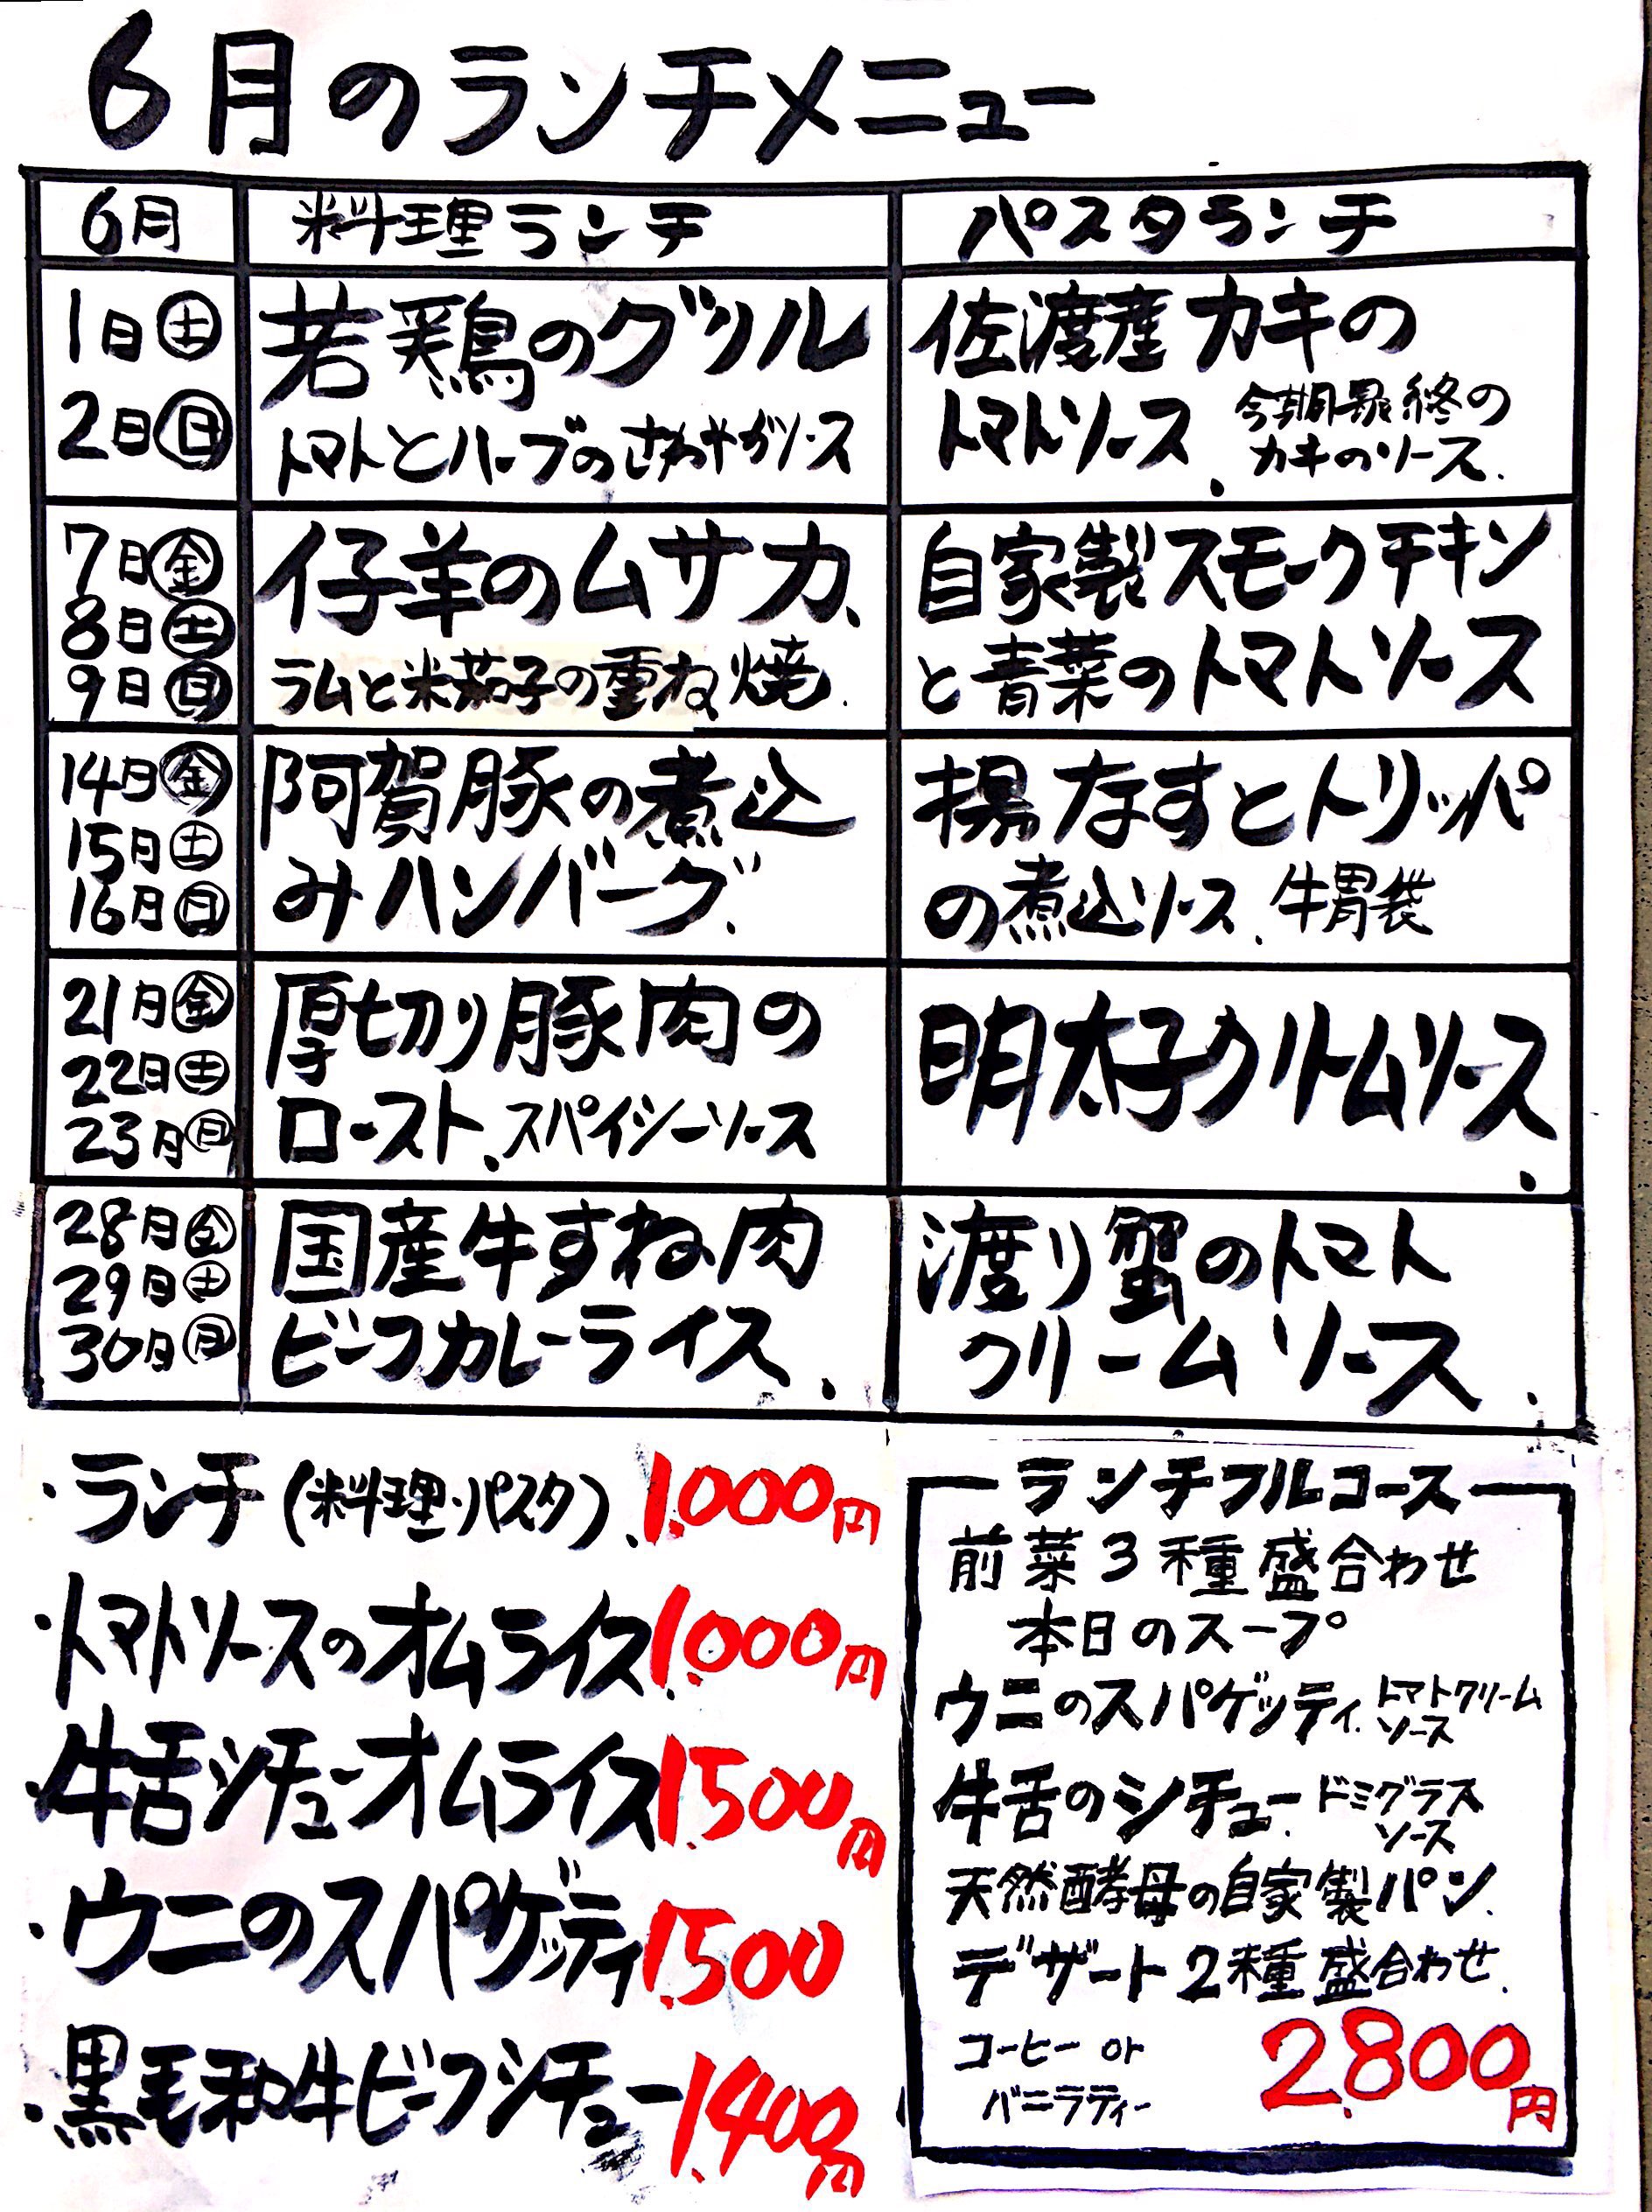 6月のランチメニュー
6月 料理ランチ パスタランチ
1日㊏
2日㊐
若鶏のグリル
トマトとハーブのさわやかソース
佐渡産カキの
トマトソース. 今期最終の
カキのソース.
7日㊎
8日㊏
9日㊐
仔羊のムサカ、
ラムと米茄子の重ね焼.
自家製スモークチキン
と青菜のトマトソース
14日㊎
15日㊏
16日㊐
阿賀豚の煮込
みハンバーグ.
揚なすとトリッパ
の煮込ソース. 牛胃袋
21日㊎
22日㊏
23日㊐
厚切り豚肉の
ロースト.スパイシーソース
明太子クリームソース.
28日㊎
29日㊏
30日㊐
国産牛すね肉
ビーフカレーライス.
渡り蟹のトマト
クリームソース.
・ランチ(料理・パスタ).1.000円
・トマトソースのオムライス1.000円
・牛舌シチューオムライス1.500円
・ウニのスパゲッティ1.500
・黒毛和牛ビーフシチュー1.400円
ランチフルコース
前菜3種盛合わせ
本日のスープ
ウニのスパゲッティ.トマトクリーム
ソース
牛舌のシチュー.ドミグラス
ソース
天然酵母の自家製パン.
デザート2種盛合わせ.
コーヒー or
バニラティー
2.800円